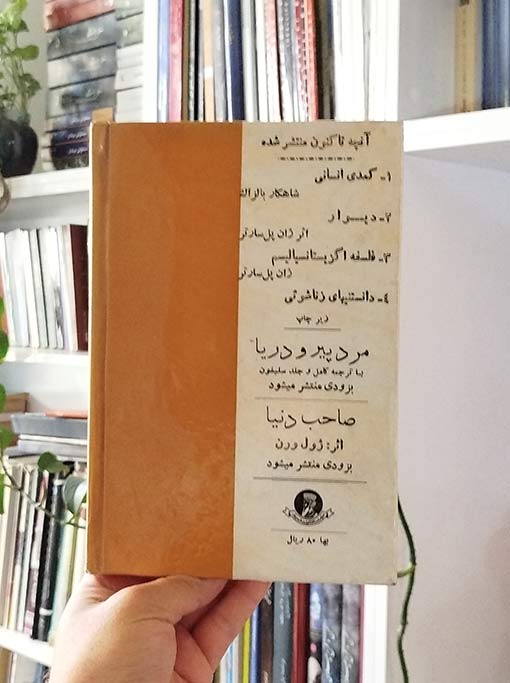 آنچه تا کنون منتشر شده
۱- کمدی انسانی
شاهکار بالزاک
۲- دیوار
اثر ژان پل سارتر
۳- فلسفه اگزیستانسیالیسم
ژان پل سارتر
۴- دانستنیهای زناشوئی
زیر چاپ
مرد پیر و دریا
با ترجمه کامل و جلد سلیفون
بزودی منتشر میشود
صاحب دنیا
اثر: ژول ورن
بزودی منتشر میشود
بها ۸۰ ریال